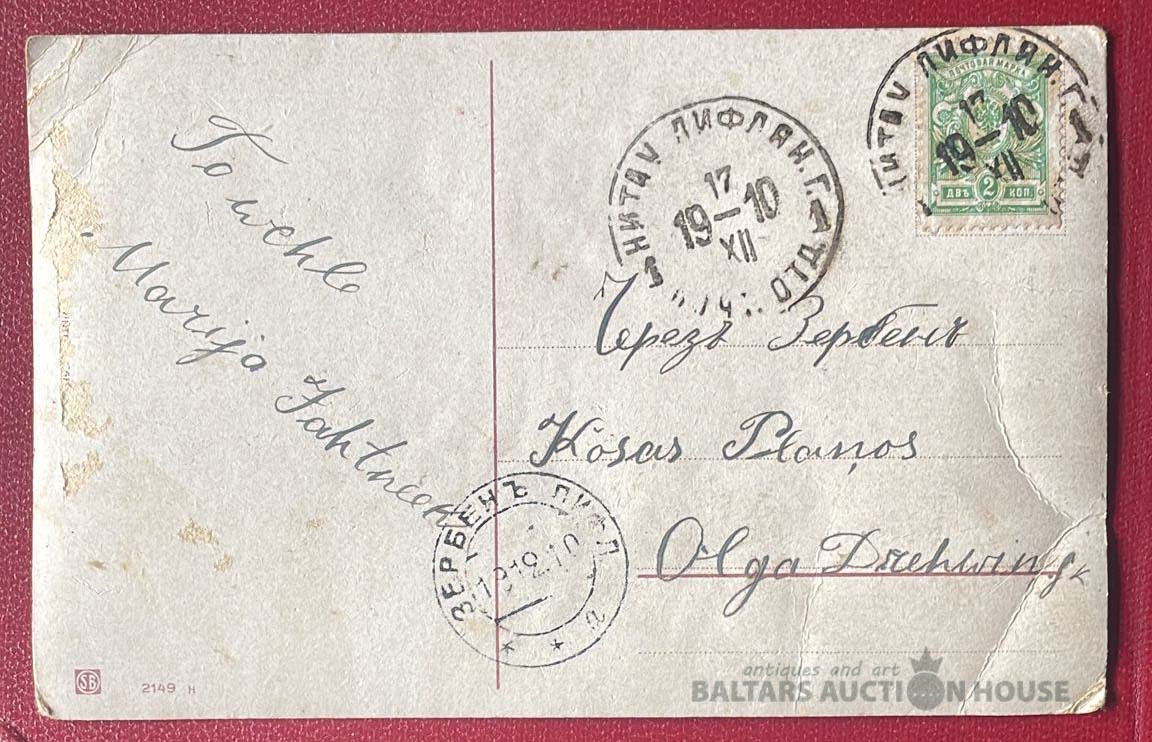 To wehle
Marija Jahtneek
НИТАУ ЛИФЛЯН. Г.
17
19—10
XII
1 ОТД
ПОЧТОВАЯ МАРКА
НИТАУ ЛИФЛЯН. Г.
17
19—10
XII
ДВѢ 2 КОП.
Черезъ Зербенъ
Kosas Plaņos
Olga Drehwing
ЗЕРБЕНЪ ЛИФЛ. Г.
1912.10
SB
2149 H
antiques and art
BALTARS AUCTION HOUSE